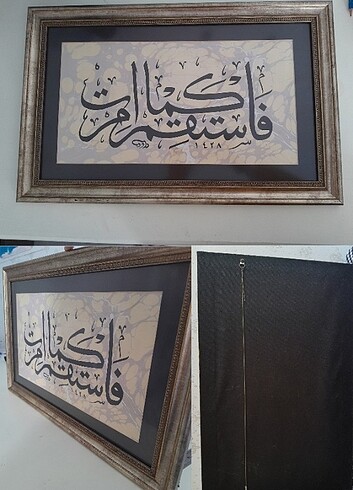 فَاسْتَقِمْ كَمَا اُمِرْتَ
١٤٢٨
فَاسْتَقِمْ كَمَا اُمِرْتَ